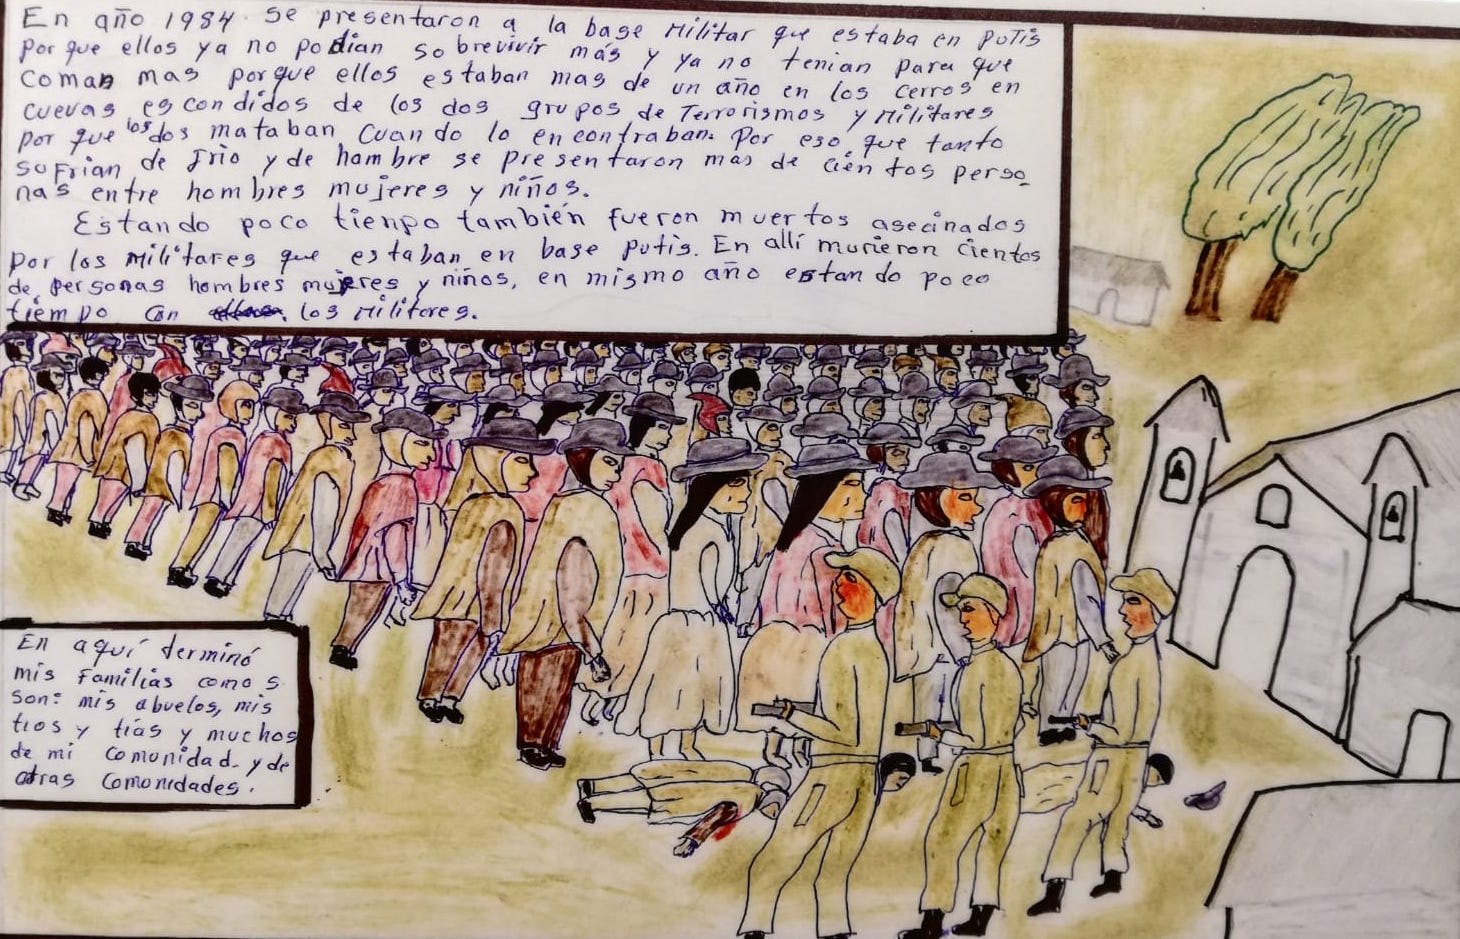 En año 1984. Se presentaron a la base Militar que estaba en Putis
por que ellos ya no podian sobrevivir más y ya no tenian para que
coman mas porque ellos estaban mas de un año en los cerros en
cuevas escondidos de los dos grupos de Terrorismos y Militares
por que los dos mataban cuando lo encontraban. Por eso que tanto
sufrian de frio y de hambre se presentaron mas de cientos perso_
nas entre hombres mujeres y niños.
Estando poco tienpo también fueron muertos asecinados
por los militares que estaban en base putis. En allí murieron cientos
de personas hombres mujeres y niños, en mismo año estando poco
tiempo con los Militares.
En aquí derminó
mis familias como s
son: mis abuelos, mis
tios y tías y muchos
de mi comunidad y de
otras comonidades.